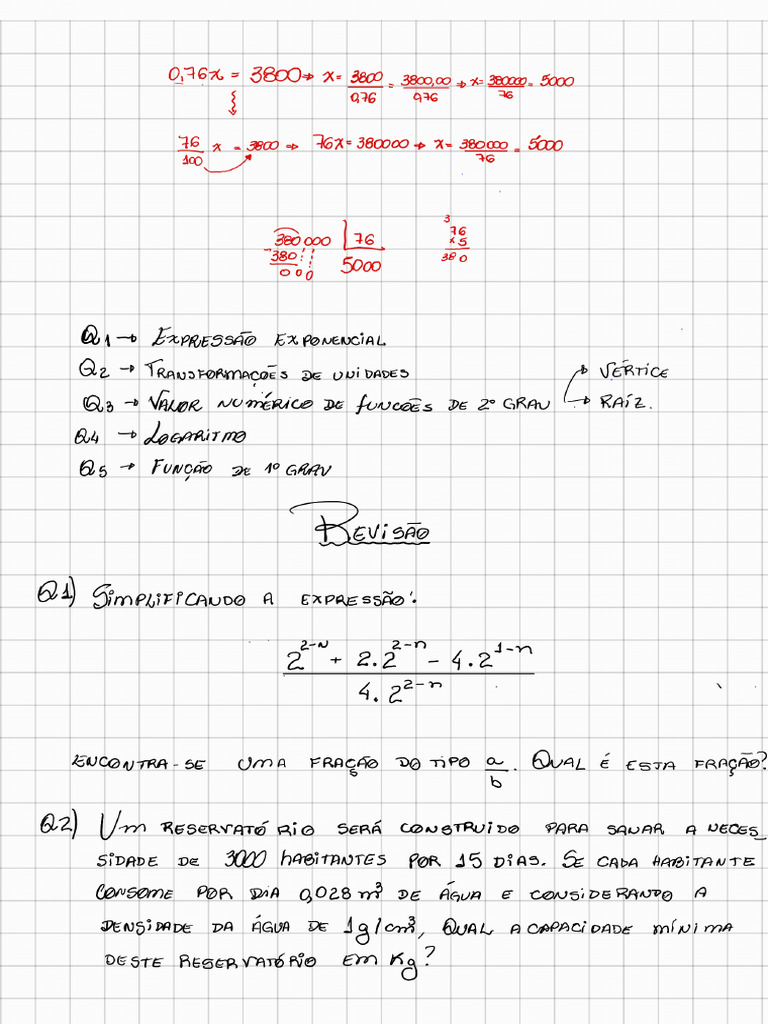 0,76x = 3800 → x = 3800/0,76 = 3800,00/0,76 → x = 380000/76 = 5000
76/100 x = 3800 → 76x = 380000 → x = 380000/76 = 5000
3
380000 | 76 76
-380 5000 x5
000 0 380
Q1 → EXPRESSÃO EXPONENCIAL
Q2 → TRANSFORMAÇÕES DE UNIDADES → VÉRTICE
Q3 → VALOR NUMÉRICO DE FUNCÕES DE 2º GRAU → RAÍZ.
Q4 → LOGARITMO
Q5 → FUNÇÃO DE 1º GRAU
REVISÃO
Q1) SIMPLIFICANDO A EXPRESSÃO:
2^(2-N) + 2.2^(2-n) - 4.2^(1-n)
4.2^(2-n)
ENCONTRA-SE UMA FRAÇÃO DO TIPO a/b. QUAL É ESTA FRAÇÃO?
Q2) UM RESERVATÓRIO SERÁ CONSTRUIDO PARA SANAR A NECES
SIDADE DE 3000 HABITANTES POR 15 DIAS. SE CADA HABITANTE
CONSOME POR DIA 0,028 m³ DE ÁGUA E CONSIDERANDO A
DENSIDADE DA ÁGUA DE 1g/cm³, QUAL A CAPACIDADE MÍNIMA
DESTE RESERVATÓRIO EM Kg?